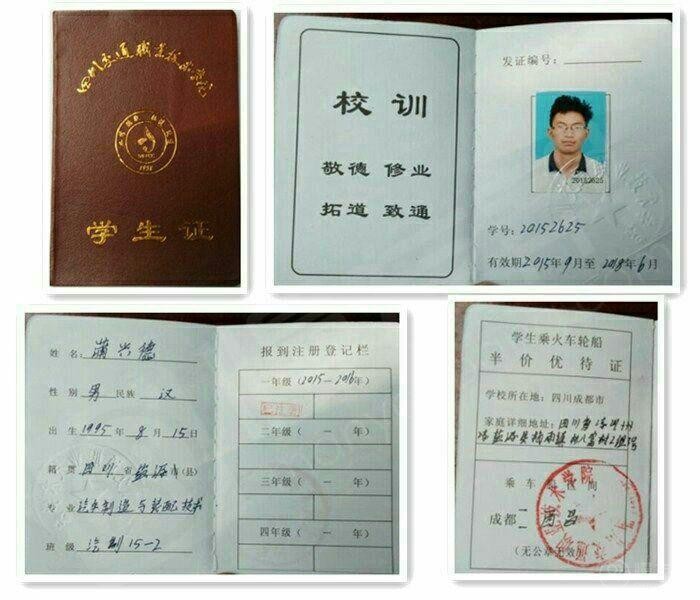 四川交通职业技术学院
1952
学生证
校训
敬德 修业
拓道 致通
发证编号:
20152625
学号: 20152625
有效期2015年9月至2018年6月
姓名: 蒲兴德
性别 男 民族 汉
出生 1995年8月15日
籍贯 四川省盐源市(县)
专业 汽车制造与装配技术
班级 汽制15-2
报到注册登记栏
一年级 (2015-2016年)
已注册
二年级 ( — 年)
三年级 ( — 年)
四年级 ( — 年)
学生乘火车轮船
半价优待证
学校所在地: 四川成都市
家庭详细地址: 四川省凉山州
盐源县梅雨镇
乘车区间
成都—西昌
(无公章无效)